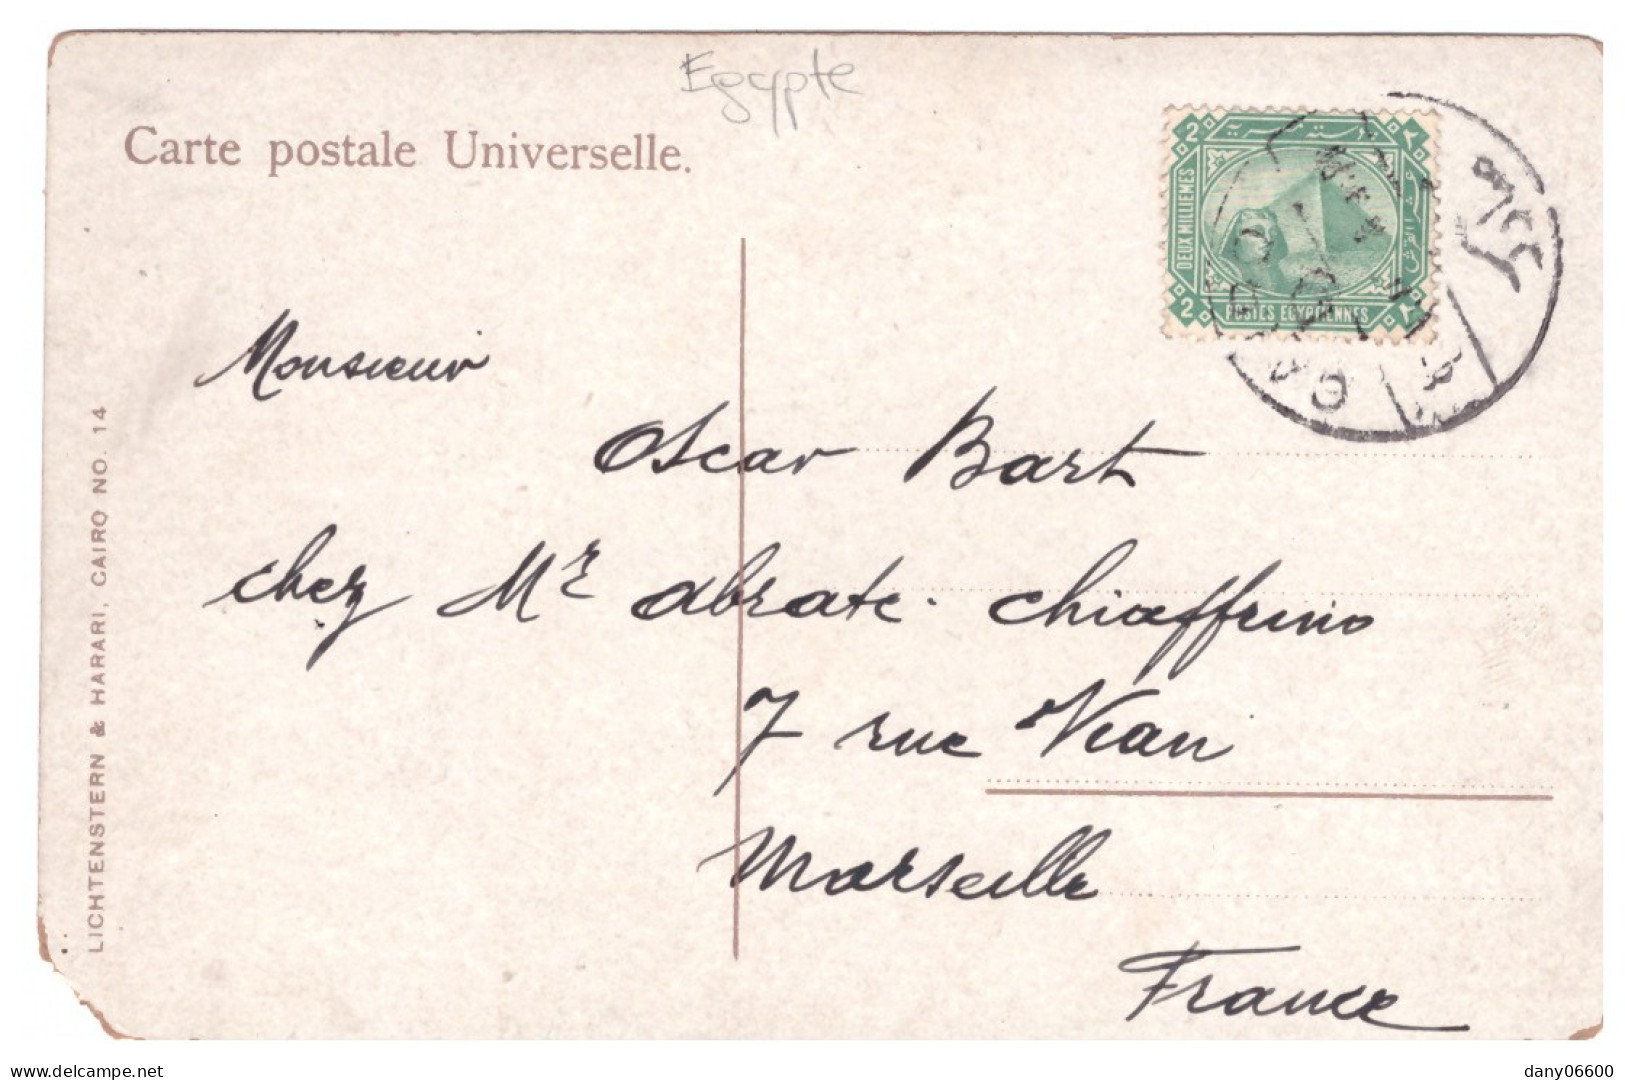 Egypte
Carte postale Universelle.
2
DEUX MILLIEMES
2
POSTES EGYPTIENNES
Monsieur
Oscar Bart
chez Mr Abrate. Chiaffrino
7 rue Vian
Marseille
France
LICHTENSTERN & HARARI, CAIRO NO. 14
dany06600